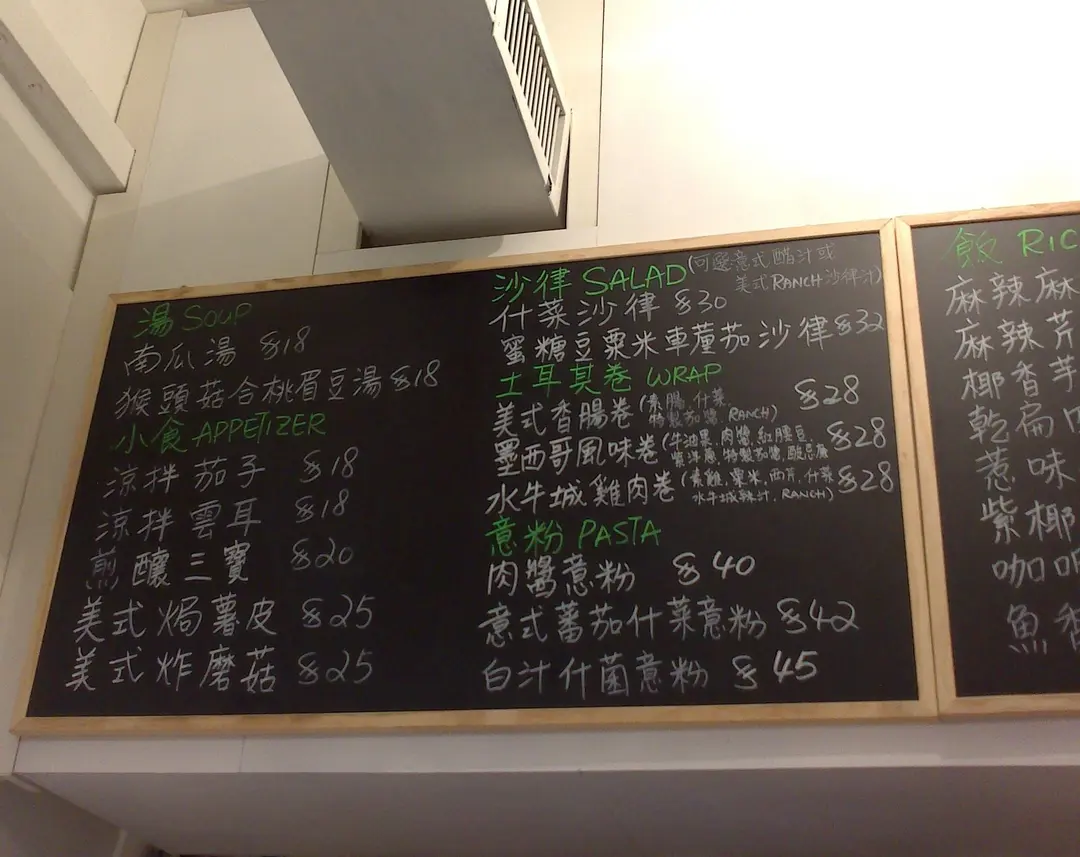 湯 SOUP
南瓜湯 $18
猴頭菇合桃眉豆湯 $18
小食 APPETIZER
涼拌茄子 $18
涼拌雲耳 $18
煎釀三寶 $20
美式焗薯皮 $25
美式炸磨菇 $25
沙律 SALAD (可選意式醋汁或
美式RANCH沙律汁)
什菜沙律 $30
蜜糖豆粟米車厘茄沙律 $32
土耳其卷 WRAP
美式香腸卷 (素腸, 什菜 $28
特製茄醬, RANCH)
墨西哥風味卷 (牛油果, 肉醬, 紅腰豆, $28
紫洋蔥, 特製茄醬, 酸忌廉
水牛城雞肉卷 (素雞, 粟米, 西芹, 什菜 $28
水牛城辣汁, RANCH)
意粉 PASTA
肉醬意粉 $40
意式蕃茄什菜意粉 $42
白汁什菌意粉 $45
飯 RIC
麻辣麻
麻辣芹
椰香芋
乾扁四
惹味
紫椰
咖喱
魚香